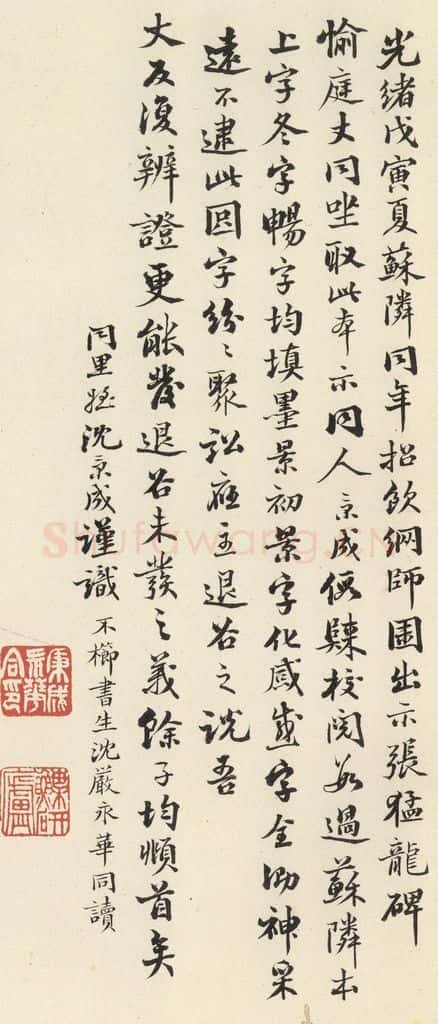 光緒戊寅夏蘇隣同年招飲網師園出示張猛龍碑
愉庭丈同㘴取此本示同人京成假歸校閱數過蘇隣本
上字冬字暢字均填墨景初景字化感感字全泐神采
遠不逮此因字紛〻聚訟應主退谷之説吾
丈反復辨證更能發退谷未發之義餘子均頫首矣
同里姪沈京成謹識
不櫛書生沈嚴永華同讀
Shufawang.cn